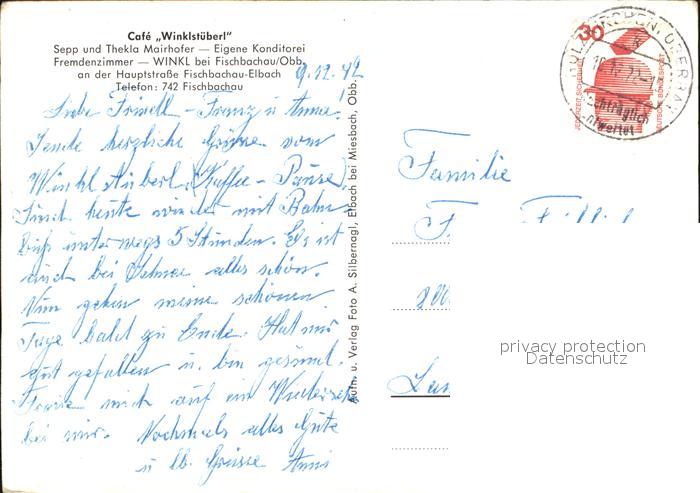 Café „Winklstüberl"
Sepp und Thekla Mairhofer — Eigene Konditorei
Fremdenzimmer — WINKL bei Fischbachau/Obb.
an der Hauptstraße Fischbachau-Elbach
Telefon: 742 Fischbachau
Liebe Franz u. Anna!
Sende herzliche Grüsse vom
Winkl Stüberl (Kaffee - Pause)
Sind heute wieder mit Bahn
bis unterwegs 5 Stunden. Es ist
auch bei Schnee alles schön.
Nun gehen meine schönen
Tage bald zu Ende. Hat mir
gut gefallen u. bin gesund.
Freue mich auf ein Wiederseh
bei mir. Nochmals alles Gute
u lb. Grüsse Anni
Aufn. u. Verlag Foto A. Silbernagl, Elbach bei Miesbach, Obb.
30
JEDERZEIT SICHERHEIT
DEUTSCHE BUNDESPOST
nachträglich
entwertet
Familie
privacy protection
Datenschutz